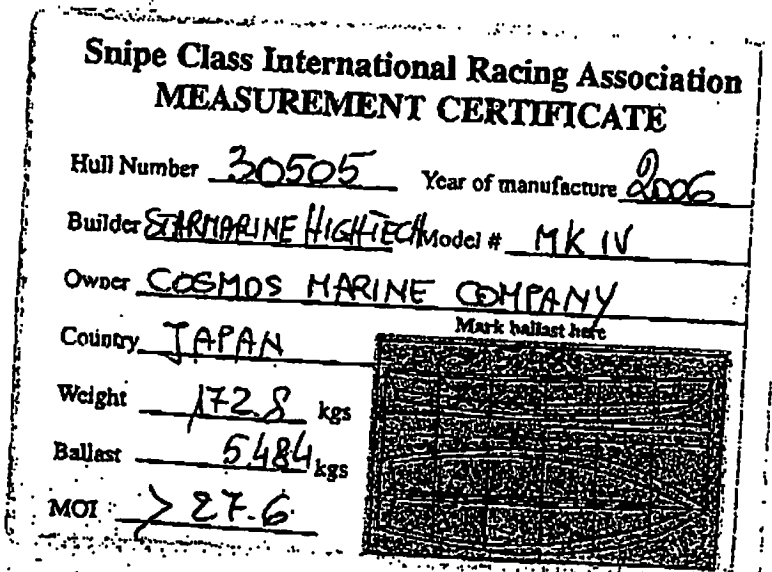 Snipe Class International Racing Association
MEASUREMENT CERTIFICATE
Hull Number 30505 Year of manufacture 2006
Builder STARMARINE HIGHTECH Model # MK IV
Owner COSMOS MARINE COMPANY
Mark ballast here
Country JAPAN
Weight 172.8 kgs
Ballast 5.484 kgs
MOI > 27.6